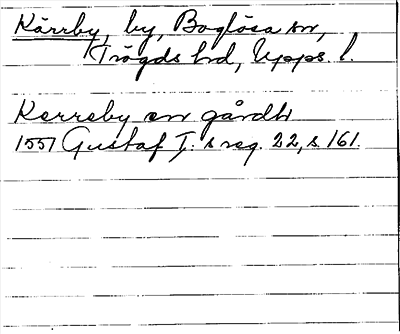 Kärrby, by, Boglösa sn,
Trögds hd, Upps. l.
Kerreby en gårdh
1551 Gustaf I:s reg. 22, s. 161.